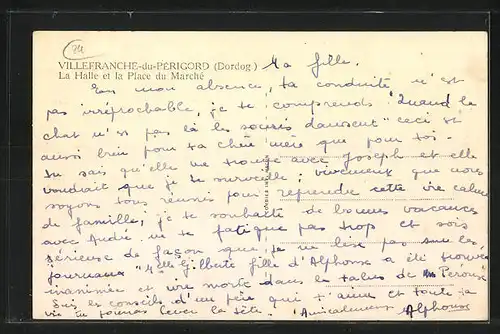 24
VILLEFRANCHE-du-PÉRIGORD (Dordog.) Ma fille.
La Halle et la Place du Marché
En mon absence, ta conduite n'est
pas irréprochable, je te comprends "Quand le
chat n'est pas là les souris dansent" ceci est
aussi bien pour ta chère mère que pour toi.
tu sais qu'elle me trompe avec Joseph et elle
voudrait que je te surveille; vivement que nous
soyons tous réunis pour reprendre cette vie calme
de famille; je te souhaite de bonnes vacances
avec André. ne te fatigue pas trop et sois
sérieuse de façon que je ne lise pas sur les
journaux "Melle Gilberte fille d'Alphonse a été trouvée
inanimée et ivre morte dans le talus de
Suis les conseils d'un père qui t'aime et toute ta
vie tu pourras lever la tête. Amicalement Alphonse